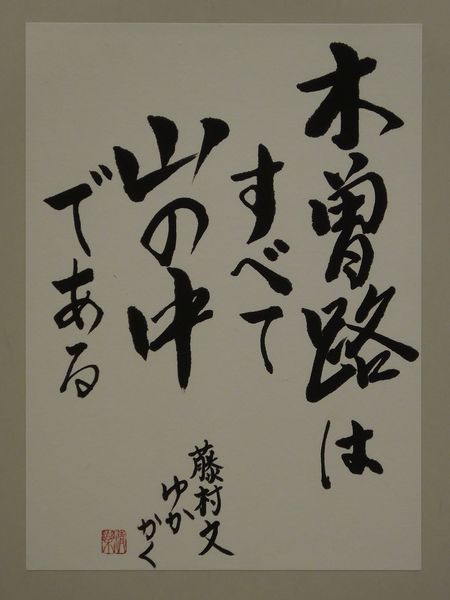 木曽路は
すべて
山の中
である
藤村文
ゆか
かく